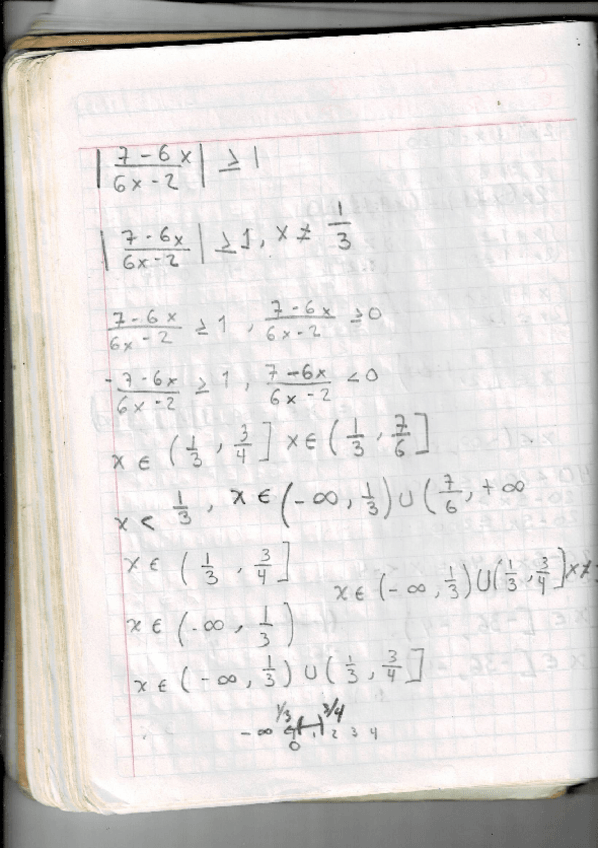 | (7 - 6x)/(6x - 2) | ≥ 1
| (7 - 6x)/(6x - 2) | ≥ 1, x ≠ 1/3
(7 - 6x)/(6x - 2) ≥ 1, (7 - 6x)/(6x - 2) ≥ 0
- (7 - 6x)/(6x - 2) ≥ 1, (7 - 6x)/(6x - 2) < 0
x ∈ (1/3, 3/4] x ∈ (1/3, 7/6]
x < 1/3, x ∈ (-∞, 1/3) ∪ (7/6, +∞
x ∈ (1/3, 3/4]
x ∈ (-∞, 1/3) ∪ (1/3, 3/4] x ≠
x ∈ (-∞, 1/3)
x ∈ (-∞, 1/3) ∪ (1/3, 3/4]
1/3 3/4
-∞ 1 2 3 4
0